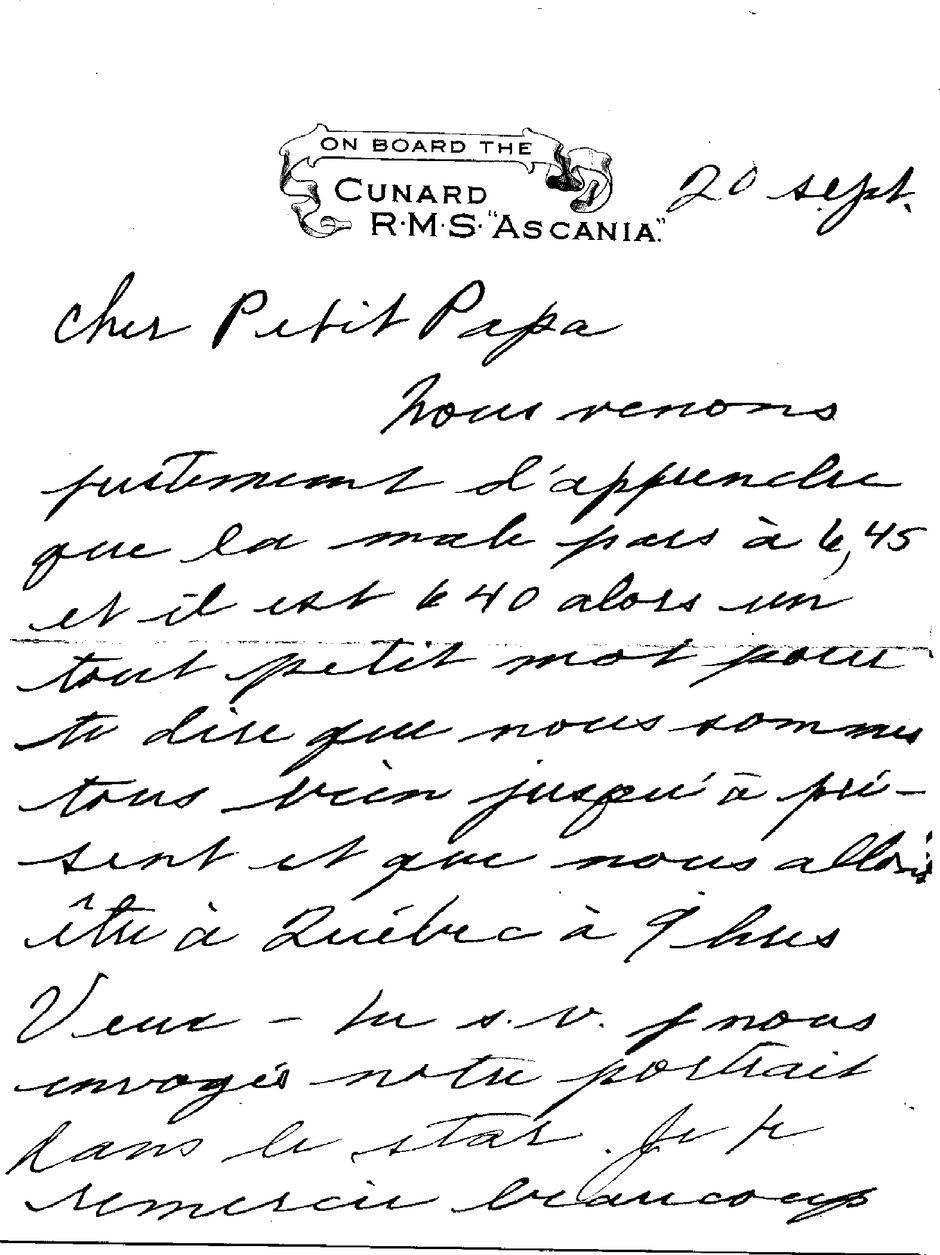 ON BOARD THE
CUNARD
R·M·S· "ASCANIA."
20 sept.
Cher Petit Papa
Nous venons
justement d'apprendre
que la male pars à 6,45
et il est 640 alors un
tout petit mot pour
te dire que nous sommes
tous bien jusqu'à pré-
sent et que nous allons
être à Québec à 9 hres
Veux-tu s.v.p nous
envoyés notre portrait
dans le star. Je te
remercie beaucoup